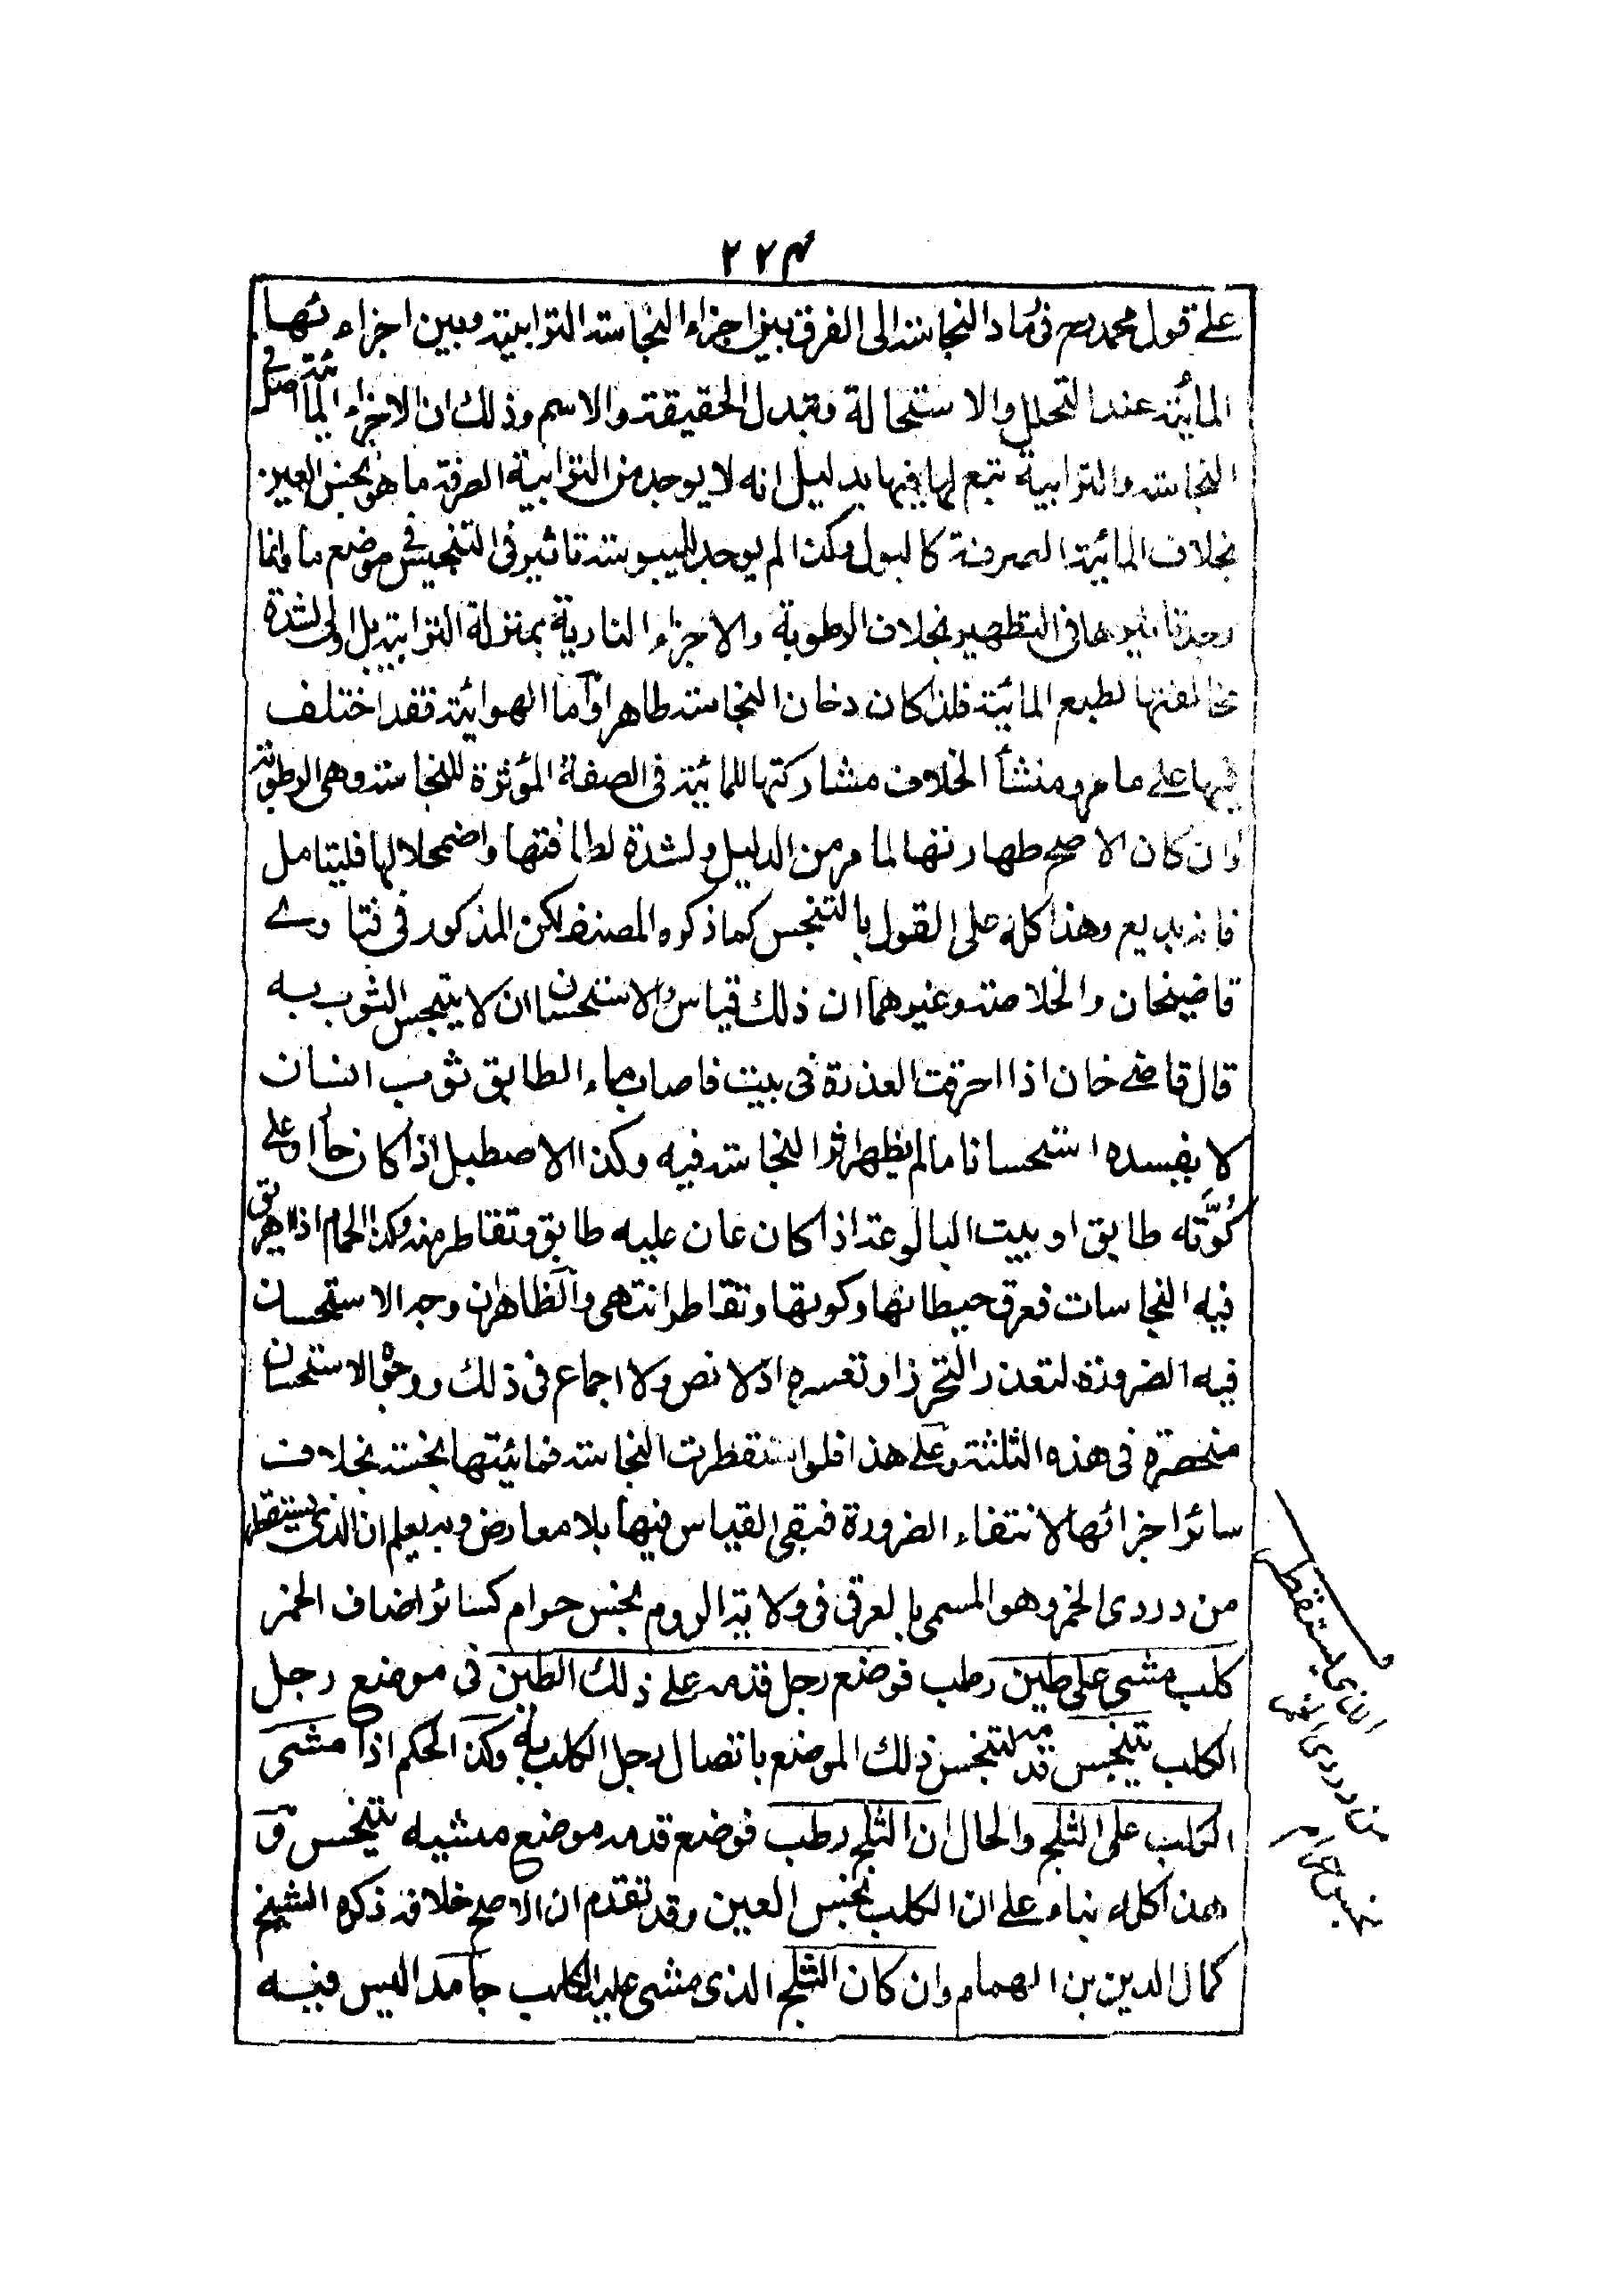 ٢٢٤
على قول محمد رح في رماد النجاسة الى الفرق بين اجزاء النجاسة الترابية وبين اجزاء ئها
المائية عند التحلل والا ستحالة وتبدل الحقيقة والاسم وذلك ان الاجزاء المائية اصل في
النجاسة والترابية تبع لها فيها بدليل انه لا يوجد من الترابية الصرفة ما هو نجس العين
بخلاف المائية الصرفة كالبول وكذا لم يوجد لليبوسة تاثير في التنجيس في موضع ما وانما
وجد تاثيرها في التطهير بخلاف الرطوبة والاجزاء النارية بمنزلة الترابية بل اولى لشدة
مخالفتها لطبع المائية فلذا كان دخان النجاسة طاهرا واما الهوائية فقد اختلف
فيها على ما مر ومنشأ الخلاف مشاركتها للمائية في الصفة المؤثرة للنجاسة وهي الرطوبة
وان كان الاصح طهارتها لما مر من الدليل ولشدة لطافتها واضمحلالها فليتامل
فانه بديع وهذا كله على القول بالتنجس كما ذكره المصنف لكن المذكور في فتاوے
قاضيخان والخلاصة وغيرهما ان ذلك قياس والاستحسان ان لا يتنجس الثوب به
قال قاضے خان اذا احرقت العذرة في بيت فاصاب ماء الطابق ثوب انسان
لا يفسده استحسانا ما لم يظهر اثر النجاسة فيه وكذا الاصطبل اذا كان حارا وعلى
كُوَّته طابق او بيت البالوعة اذا كان عليه طابق وتقاطر منه وكذا الحمام اذا اهريق
فيه النجاسات فعرق حيطانها وكوتها وتقاطر انتهى والظاهر ان وجه الاستحسان
فيه الضرورة لتعذر التحرز او تعسره اذ لا نص ولا اجماع في ذلك ووجوه الاستحسان
منحصرة في هذه الثلثة وعلى هذا فلو استقطرت النجاسة فمائيتها نجسة بخلاف
سائر اجزائها لانتفاء الضرورة فبقى القياس فيها بلا معارض وبه يعلم ان الذى يستقطر
من دردى الخمر وهو المسمى بالعرقى في ولاية الروم نجس حرام كسائر اصناف الخمر
كلب مشى على طين رطب فوضع رجل قدمه على ذلك الطين في موضع رجل
الكلب يتنجس قدمه لتنجس ذلك الموضع باتصال رجل الكلب به وكذا الحكم اذا مشى
الكلب على الثلج والحال ان الثلج رطب فوضع قدمه موضع مشيه يتنجس و
هذا كله بناء على ان الكلب نجس العين وقد تقدم ان الاصح خلافه ذكره الشيخ
كمال الدين بن الهمام وان كان الثلج الذى مشى عليه الكلب جامدا ليس فيه
الذى يستقطر
من دردى الخمر
نجس حرام